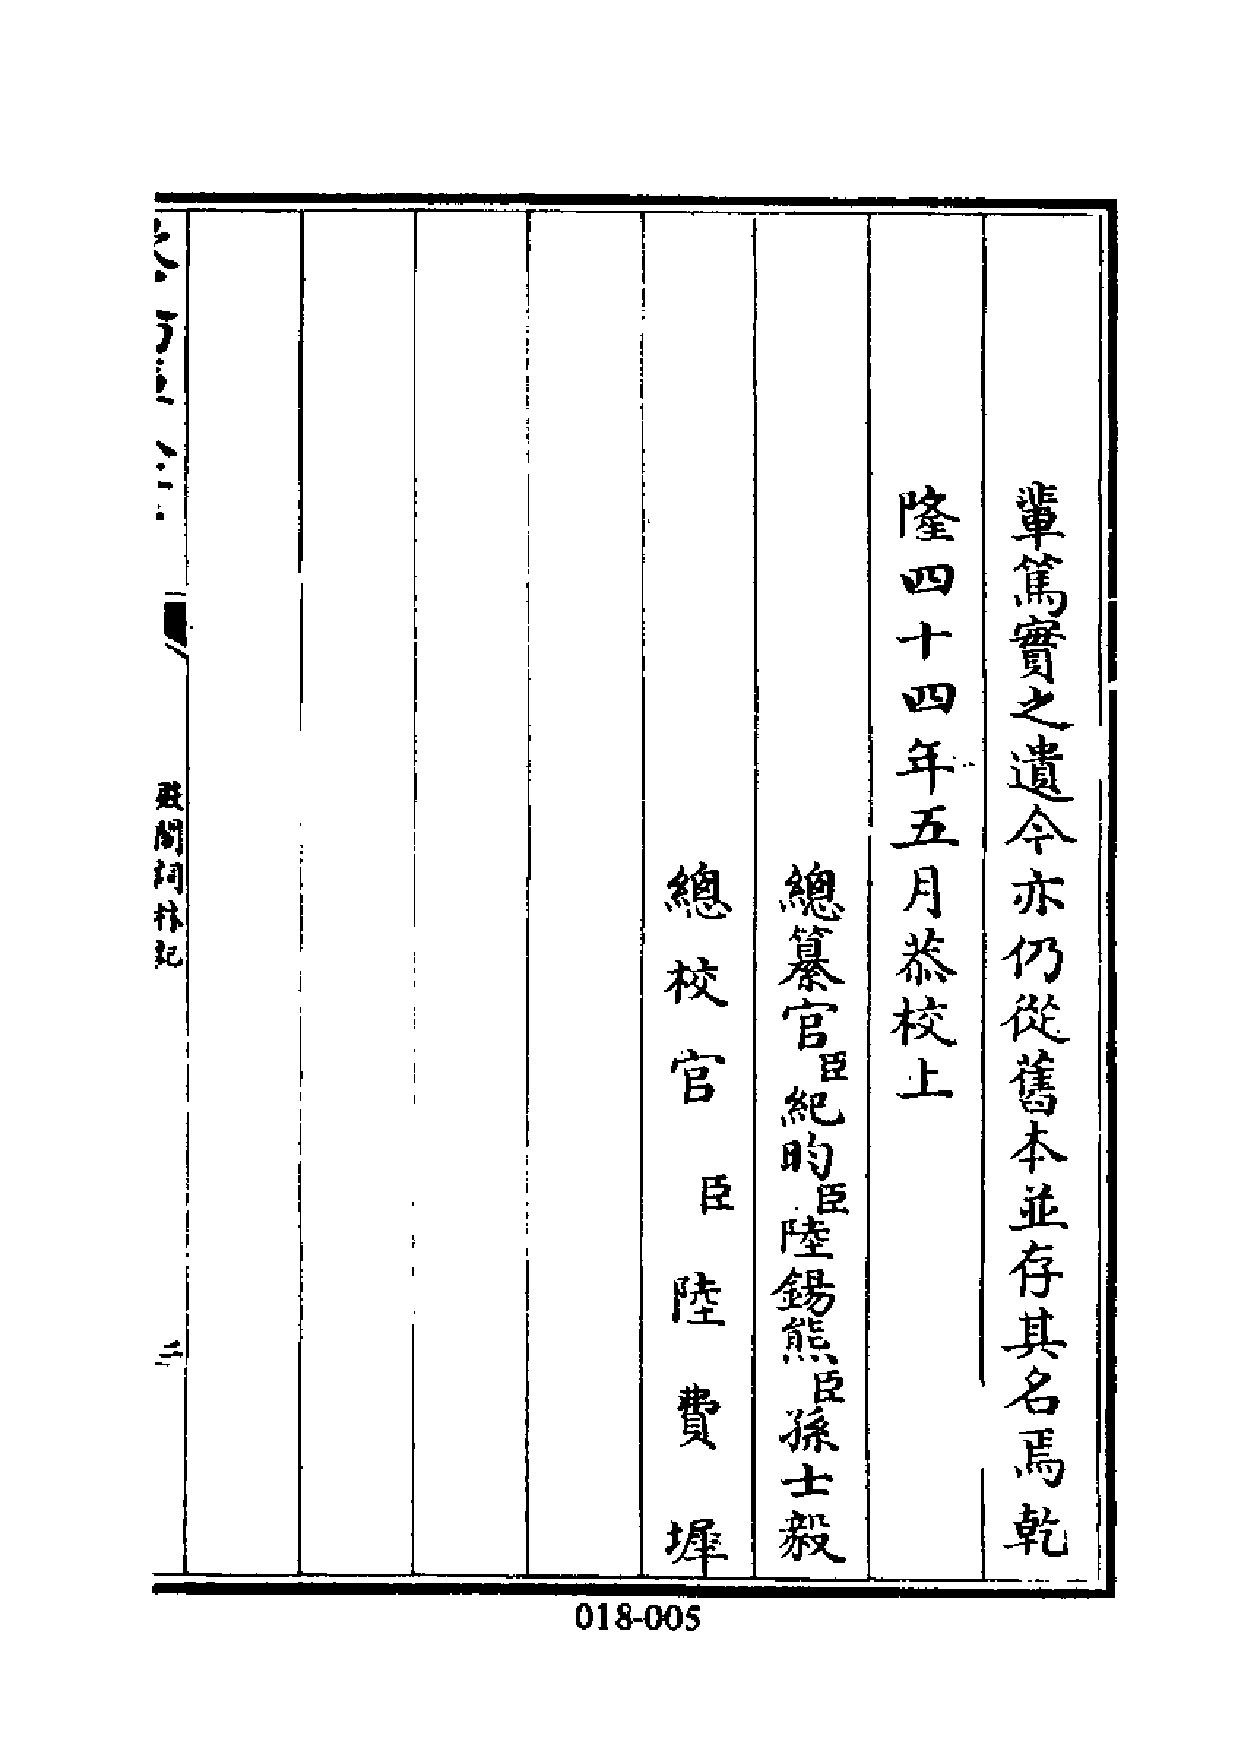 輩篤實之遺今亦仍從舊本並存其名焉乾
隆四十四年五月恭校上
總纂官臣紀昀臣陸錫熊臣孫士毅
總校官臣陸費墀
殿閣詞林記
二
018-005